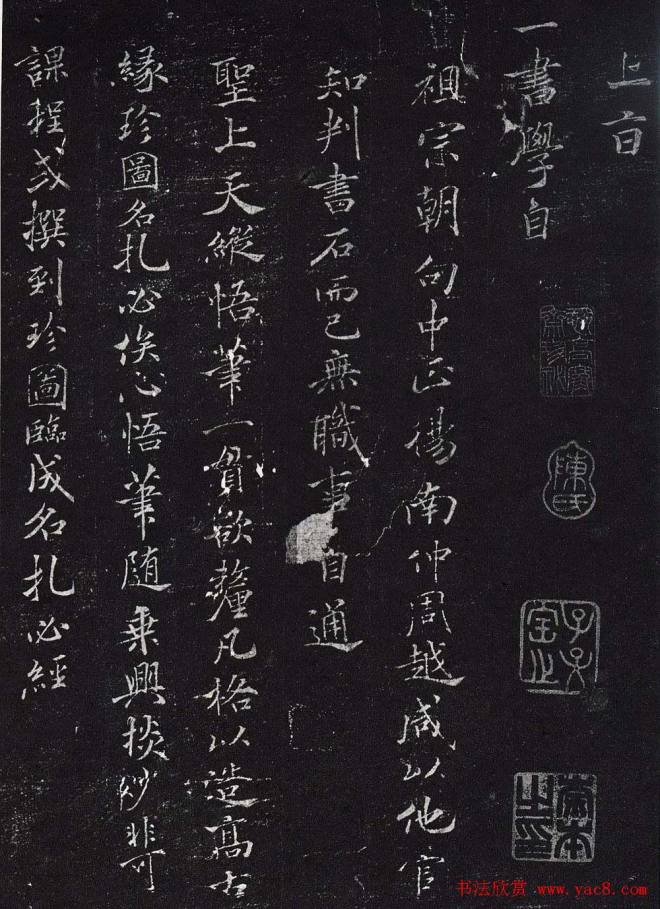 上百
一書學自
祖宗朝句中正楊南仲周越咸以他官
知判書石而已無職事自通
聖上天縱悟筆一貫欲釐凡格以造高古
緣珍圖名札必俟心悟筆隨乘興掞妙非可
課程或撰到珍圖臨成名札必經
陳氏
子孫
宝之
书法欣赏 www.yac8.com